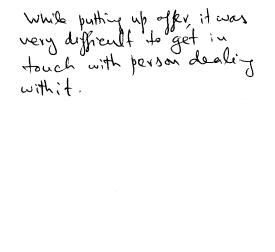 While putting up offer, it was
very difficult to get in
touch with person dealing
withit.